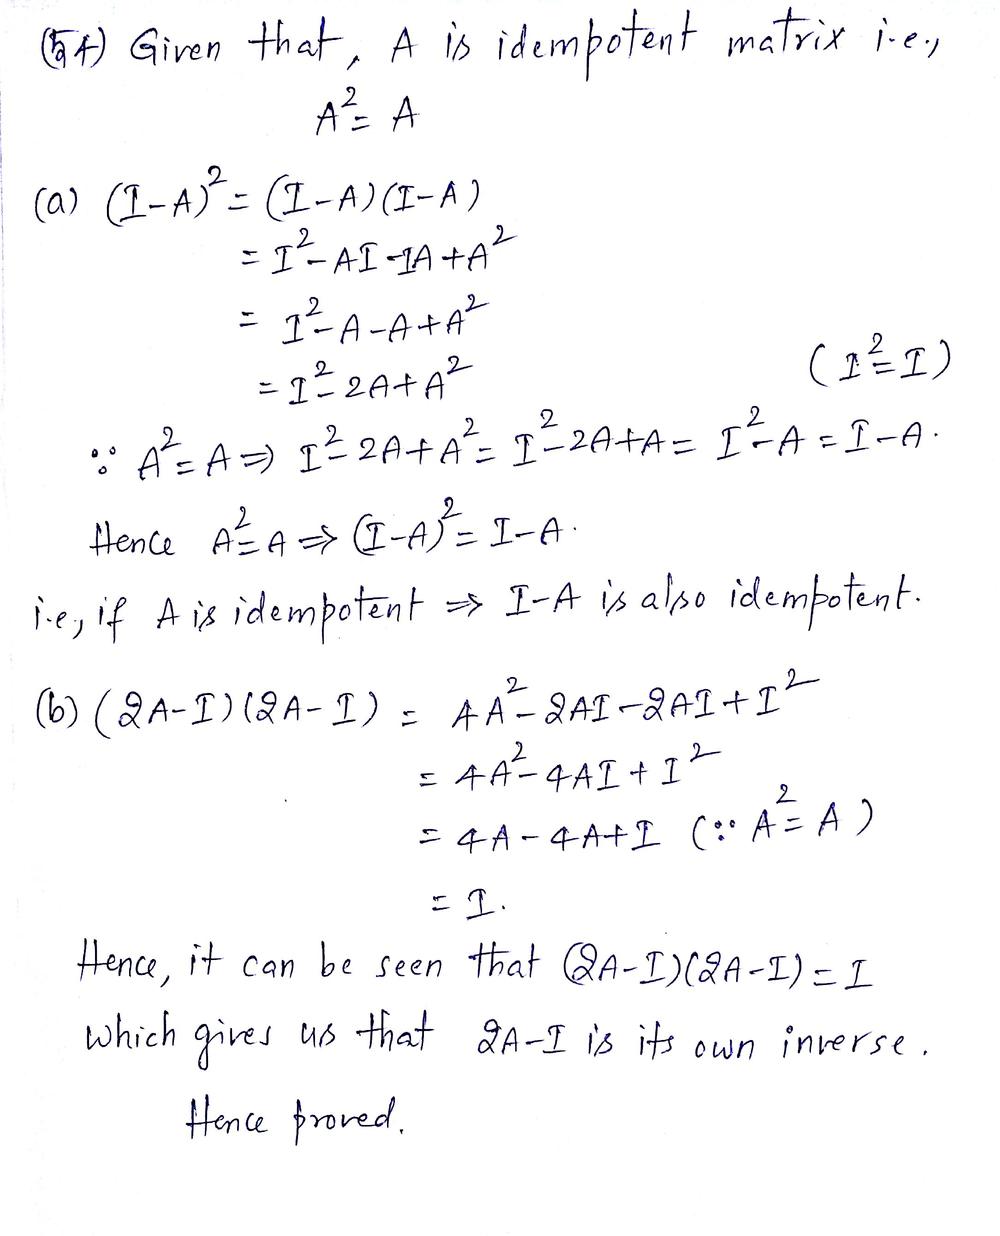 (54) Given that, A is idempotent matrix i.e.,
A² = A
(a) (I-A)² = (I-A)(I-A)
= I² - AI - IA + A²
= I² - A - A + A²
= I² - 2A + A² (I² = I)
∵ A² = A ⇒ I² - 2A + A² = I² - 2A + A = I² - A = I - A.
Hence A² = A ⇒ (I-A)² = I - A.
i.e., if A is idempotent ⇒ I-A is also idempotent.
(b) (2A-I)(2A-I) = 4A² - 2AI - 2AI + I²
= 4A² - 4AI + I²
= 4A - 4A + I (∵ A² = A)
= I.
Hence, it can be seen that (2A-I)(2A-I) = I
which gives us that 2A-I is its own inverse.
Hence proved.